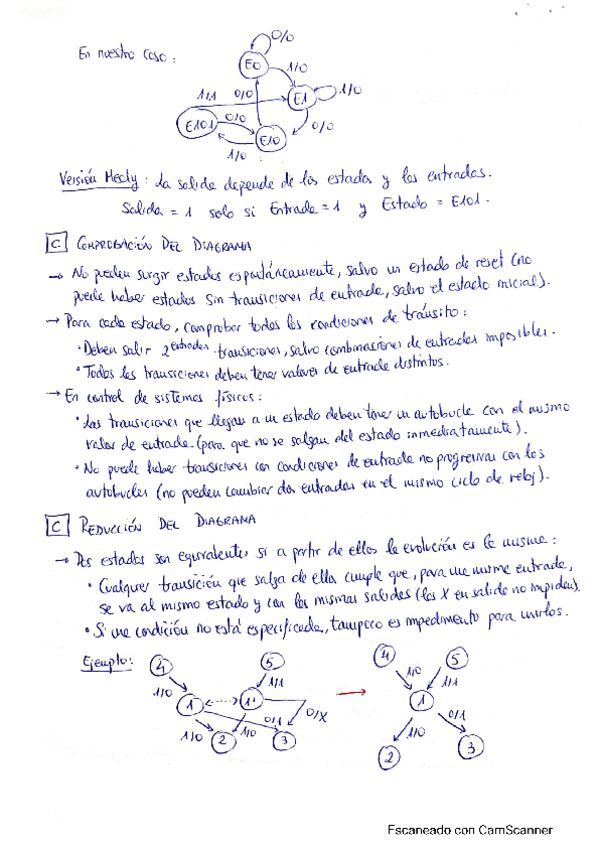 En nuestro caso:
0/0
E0
1/0
1/1
0/0
E1
1/0
E101
0/0
E10
0/0
1/0
Versión Mealy: La salida depende de los estados y las entradas.
Salida = 1 solo si Entrada = 1 y Estado = E101.
C COMPROBACIÓN DEL DIAGRAMA
→ No pueden surgir estados espontáneamente, salvo un estado de reset (no
puede haber estados sin transiciones de entrada, salvo el estado inicial).
→ Para cada estado, comprobar todas las condiciones de tránsito:
• Deben salir 2^entradas transiciones, salvo combinaciones de entradas imposibles.
• Todas las transiciones deben tener valores de entrada distintos.
→ En control de sistemas físicos:
• Las transiciones que llegan a un estado deben tener un autobucle con el mismo
valor de entrada (para que no se salgan del estado inmediatamente).
• No puede haber transiciones con condiciones de entrada no progresivas con los
autobucles (no pueden cambiar dos entradas en el mismo ciclo de reloj).
C REDUCCIÓN DEL DIAGRAMA
→ Dos estados son equivalentes si a partir de ellos la evolución es la misma:
• Cualquier transición que salga de ella cumple que, para una misma entrada,
se va al mismo estado y con las mismas salidas (las X en salida no impiden).
• Si una condición no está especificada, tampoco es impedimento para unirlos.
Ejemplo:
4
5
4
5
1/0
1/1
1/0
1/1
1
1'
1
1/0
1/0
0/1
0/X
1/0
0/1
2
3
2
3
Escaneado con CamScanner